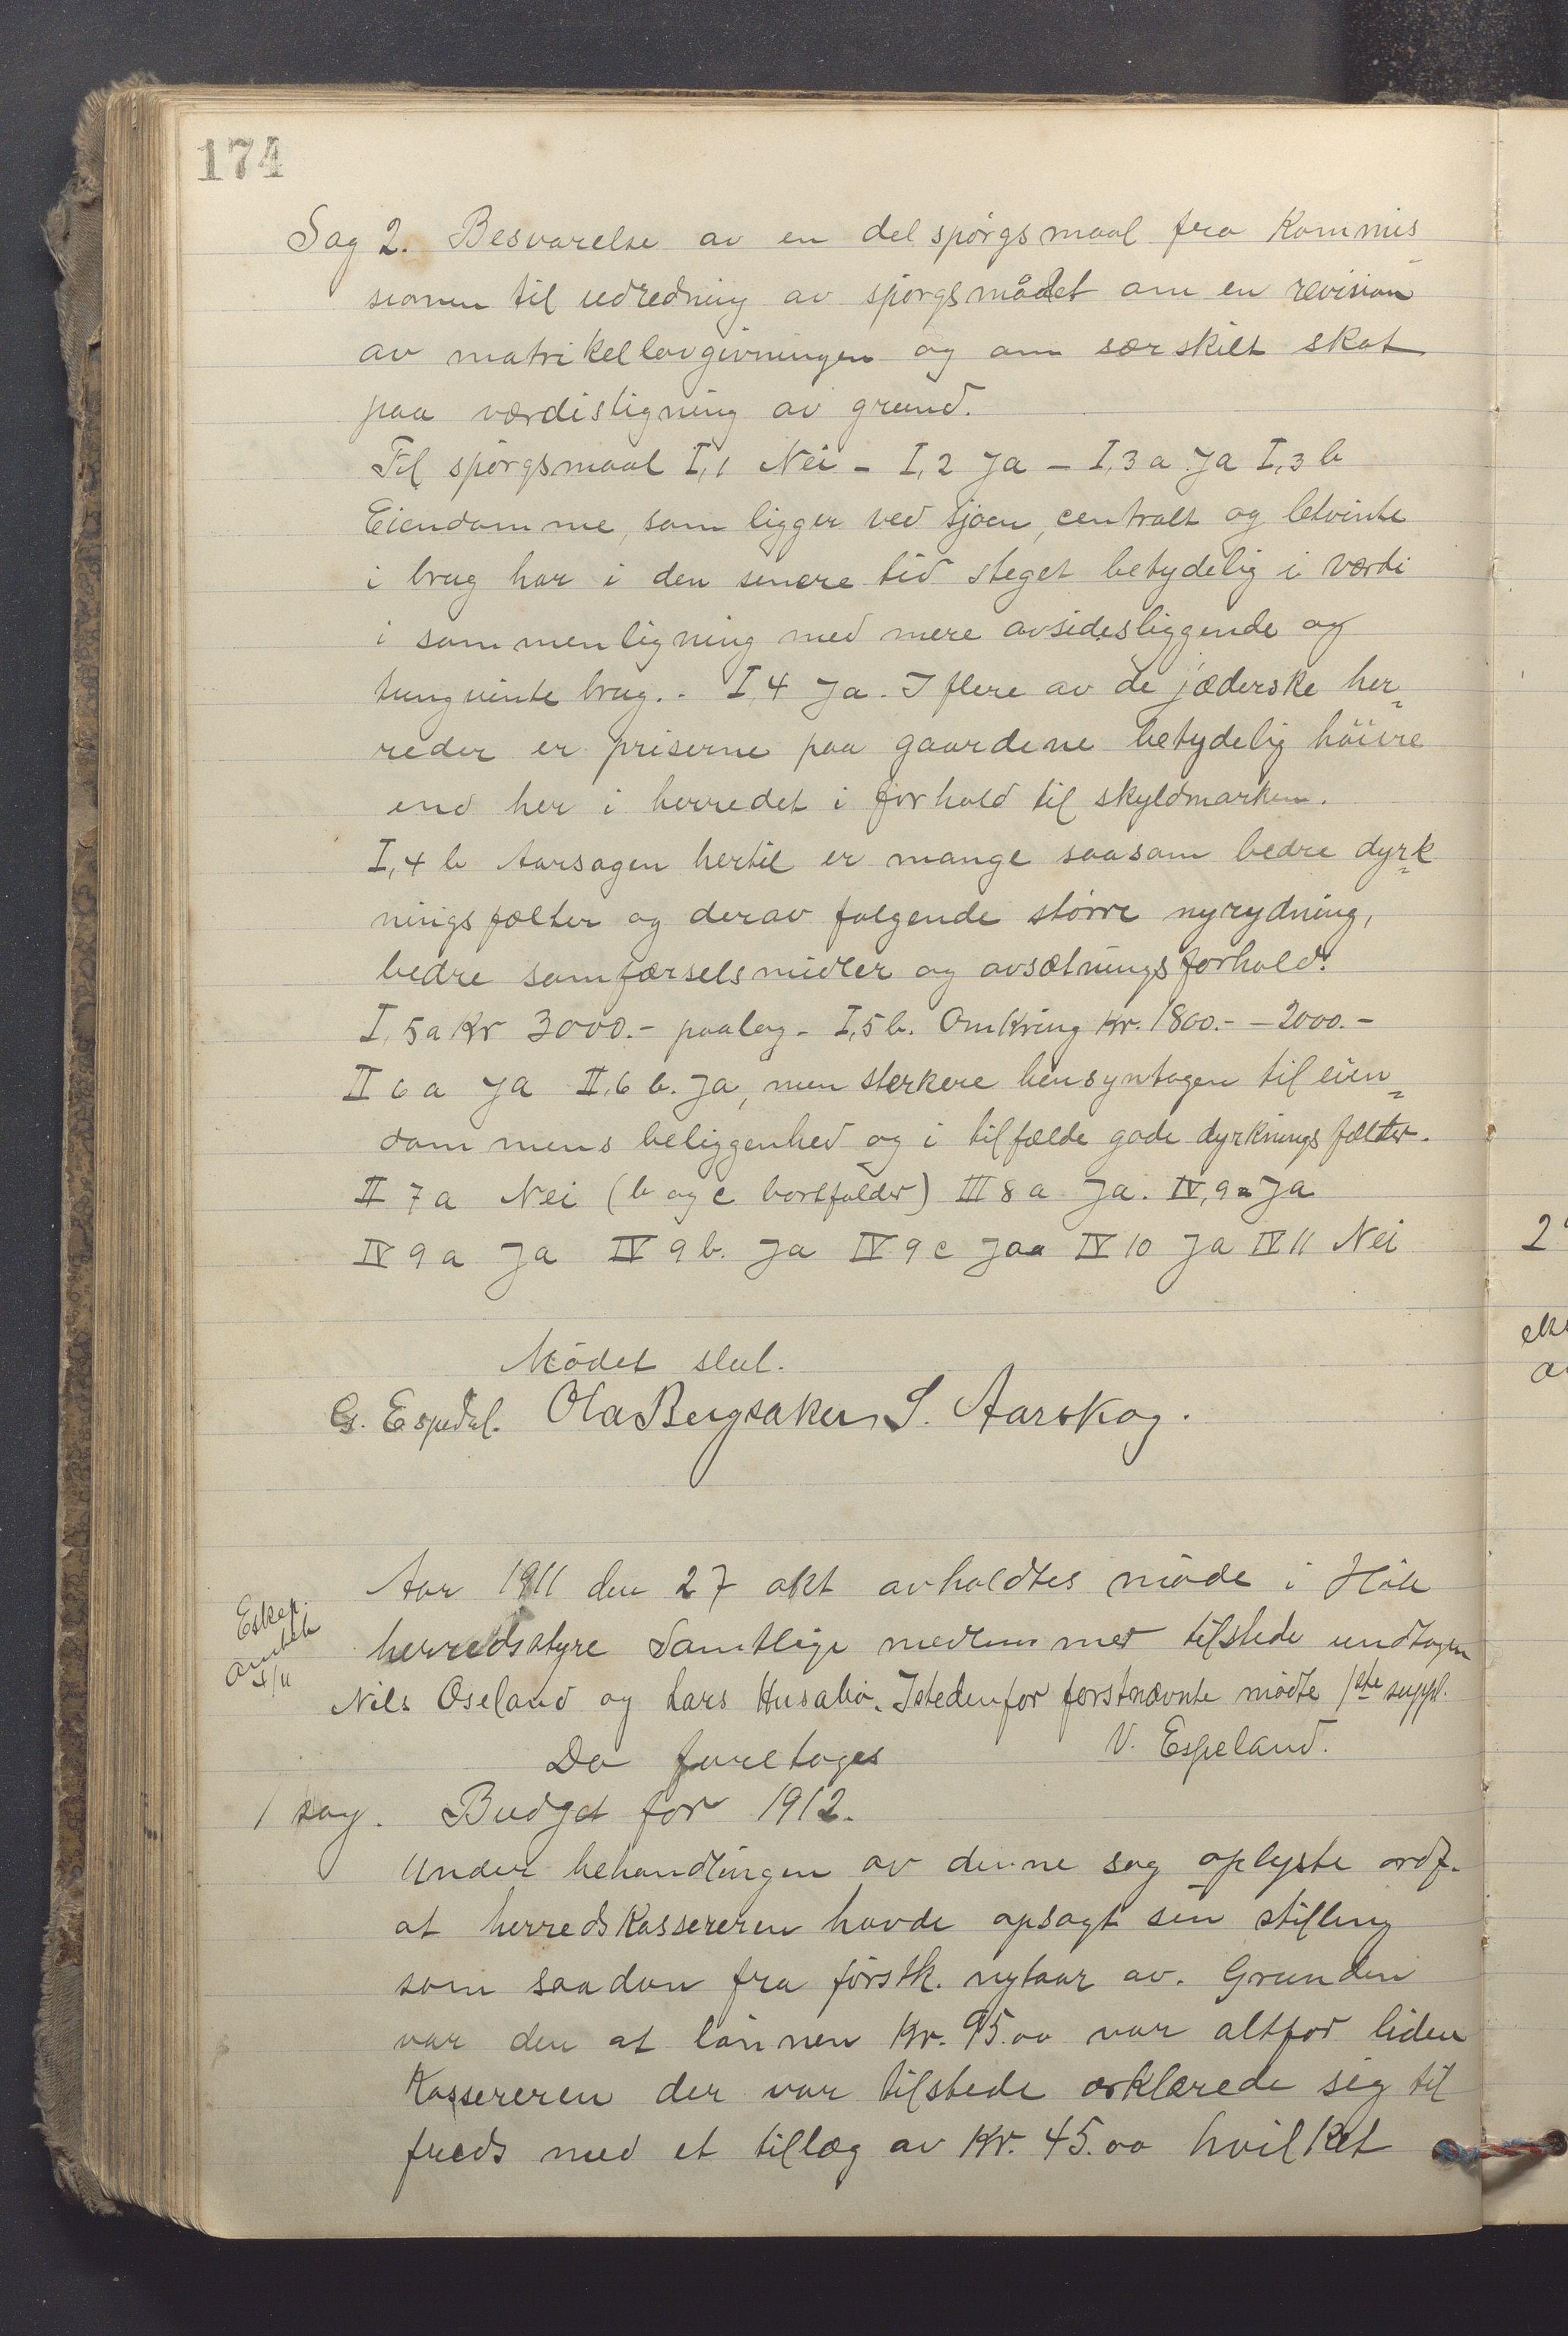 174
Sag 2. Besvarelse av en del spørgsmaal fra Kommis
sionen til udredning av spørgsmålet om en revision
av matrikellovgivningen og om særskilt skat
paa værdistigning av grund.
Til spørgsmaal I,1 Nei - I,2 Ja - I,3 a Ja I,3 b
Eiendomme, som ligger ved sjøen, centralt og letvinte
i brug har i den senere tid steget betydelig i værdi
i sammenligning med mere avsidesliggende og
tungvinte brug.. I,4 Ja. I flere av de jæderske her=
reder er priserne paa gaardene betydelig høiere
end her i herredet i forhold til skyldmarken.
I,4 b Aarsagen hertil er mange saasom bedre dyrk=
ningsfælter og derav følgende større nyrydning,
bedre samfærselsmidler og avsætningsforhold.
I,5a Kr 3000.- paalag - I,5 b. Omkring Kr. 1800.- - 2000.-
II 6 a Ja II,6 b. Ja, men sterkere hensyntagen til eien=
dommens beliggenhed og i tilfælde gode dyrkningsfælter.
II 7 a Nei (b og c bortfalder) III 8 a Ja. IV,9a Ja
IV 9 a Ja IV 9 b. Ja IV 9 c Jaa IV 10 Ja IV 11 Nei
Mødet slut.
G. Espedal. Ola Bergsaker S. Aarskog.
Aar 1911 den 27 okt avholdtes møde i Høle
Eksp.
amtet
4/11
herredsstyre Samtlige medlemmer tilstede undtagen
Nils Oseland og Lars Husabø. Istedenfor førstnævnte mødte 1ste suppl.
V. Espeland.
Da foretoges
1 sag. Budget for 1912.
Under behandlingen av denne sag oplyste ordf.
at herredskassereren havde opsagt sin stilling
som saadan fra førstk. nytaar av. Grunden
var den at lønnen Kr. 95.00 var altfor liden
Kassereren der var tilstede erklærede sig til
freds med et tillæg av Kr. 45.00 hvilket